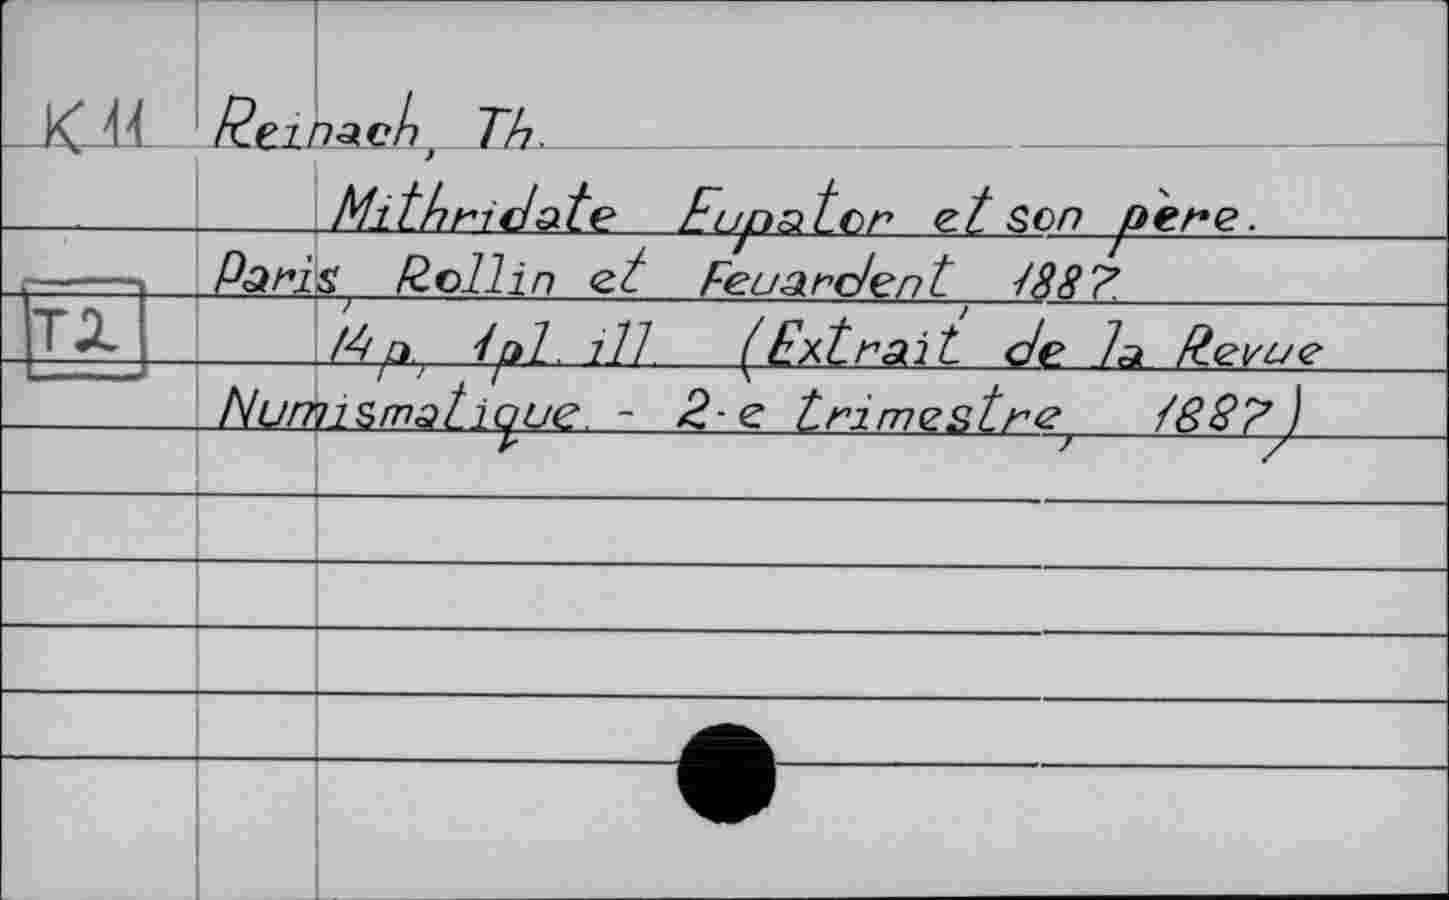 K11 Reinach, Th.
Mithridate Eupator et son père.
Paris, Rollin et Feuardent, 1887.
T2
14 p., 1 pl. ill. (Extrait de la Revue
Numismatique. - 2-e trimestre, 1887)